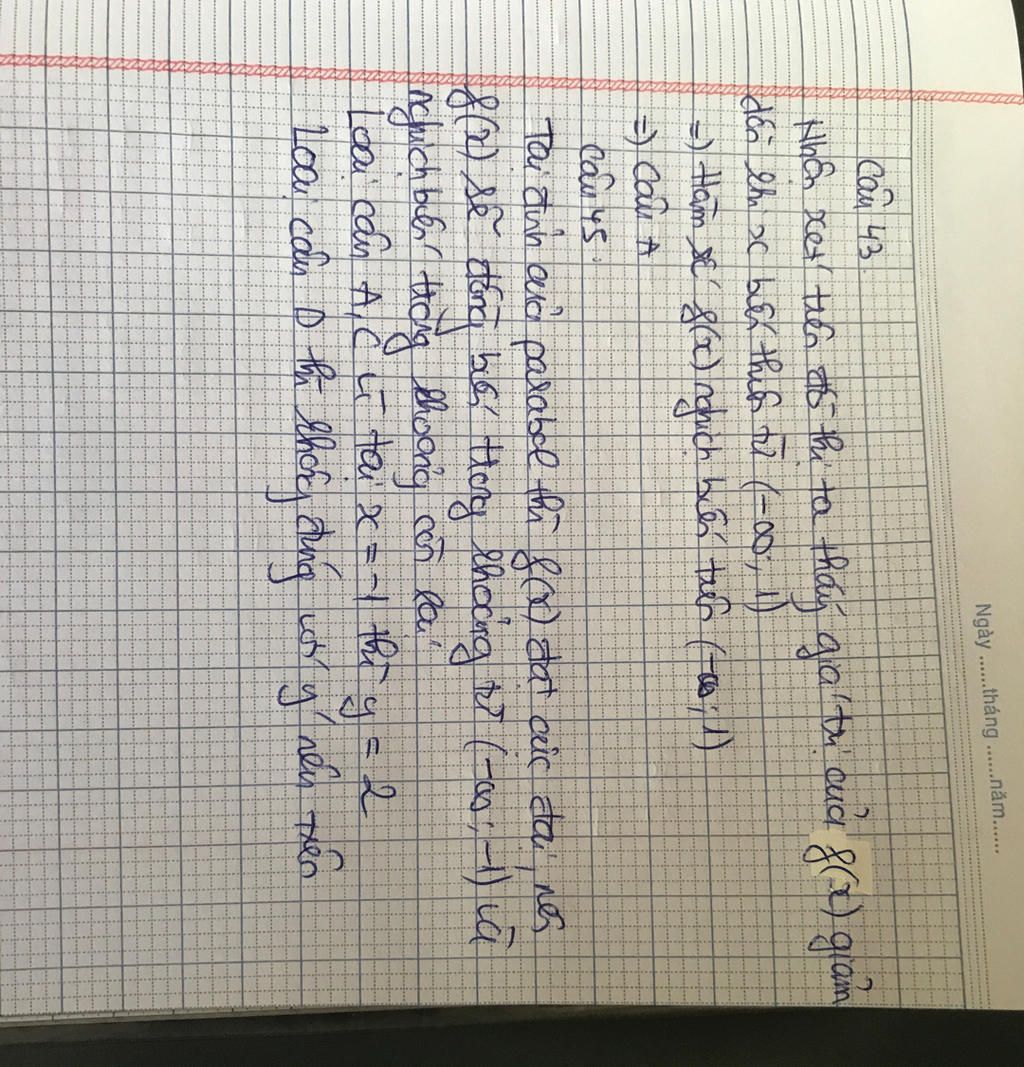 Ngày.......tháng.......năm.......
Câu 43.
Nhận xét trên đồ thị ta thấy giá trị của f(x) giảm
dần khi x biến thiên từ (-∞; 1)
=) Hàm số f(x) nghịch biến trên (-∞; 1)
=) Câu A
Câu 45.
Tại đỉnh của parabol thì f(x) đạt cực đại, nên
f(x) sẽ đồng biến trong khoảng từ (-∞; -1) và
nghịch biến trong khoảng còn lại
Loại câu A, C vì tại x = -1 thì y = 2
Loại câu D thì không đúng với ý nêu trên